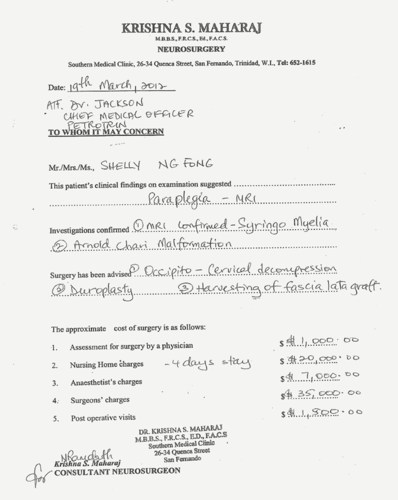 KRISHNA S. MAHARAJ
M.B.B.S., F.R.C.S., Ed., F.A.C.S.
NEUROSURGERY
Southern Medical Clinic, 26-34 Quenca Street, San Fernando, Trinidad, W.I., Tel: 652-1615
Date: 19th March, 2012
ATT. Dr. JACKSON
CHIEF MEDICAL OFFICER
PETROTRIN
TO WHOM IT MAY CONCERN
Mr./Mrs./Ms., SHELLY NG FONG
This patient's clinical findings on examination suggested
Paraplegia - MRI
Investigations confirmed ① MRI Confirmed - Syringo Myelia
② Arnold Chari Malformation
Surgery has been advised ① Occipito - Cervical decompression
② Duroplasty ③ Harvesting of fascia lata graft.
The approximate cost of surgery is as follows:
1. Assessment for surgery by a physician $ $1,000.00
2. Nursing Home charges - 4 days stay $ $20,000.00
3. Anaesthetist's charges $ $7,000.00
4. Surgeons' charges $ $35,000.00
5. Post operative visits $ $1,800.00
DR. KRISHNA S. MAHARAJ
M.B.B.S., F.R.C.S., E.D., F.A.C.S
Southern Medical Clinic
26-34 Quenca Street
San Fernando
for Krishna S. Maharaj
CONSULTANT NEUROSURGEON